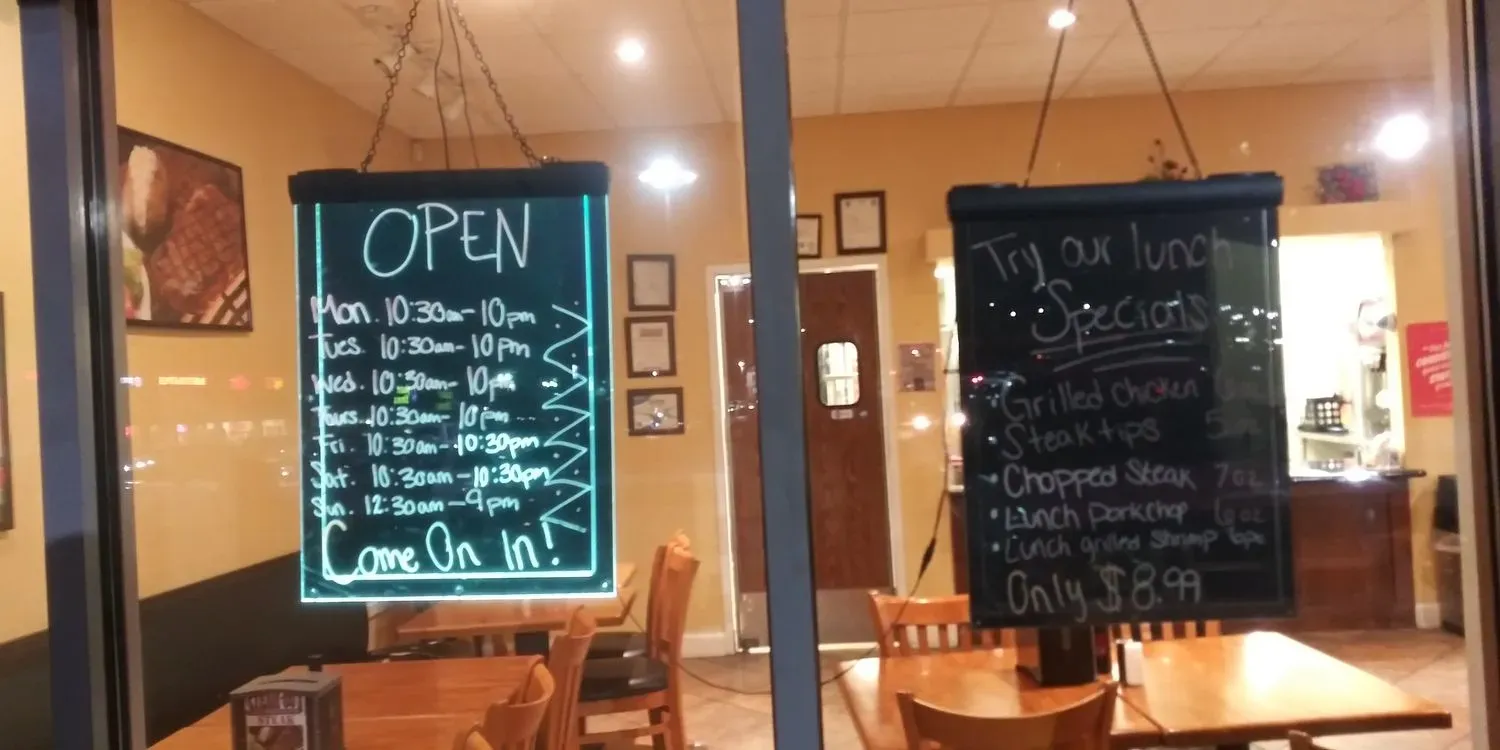 OPEN
Mon. 10:30am-10pm
Tues. 10:30am-10pm
Wed. 10:30am-10pm
Tours. 10:30am-10pm
Fri. 10:30am-10:30pm
Sat. 10:30am-10:30pm
Sun. 12:30am-9pm
Come On In!
Try our lunch
Specials
Grilled chicken
Steak tips
• Chopped Steak 7oz
• Lunch Porkchop 6oz
• Lunch grilled Shrimp 6pc
Only $8.99
STEAK